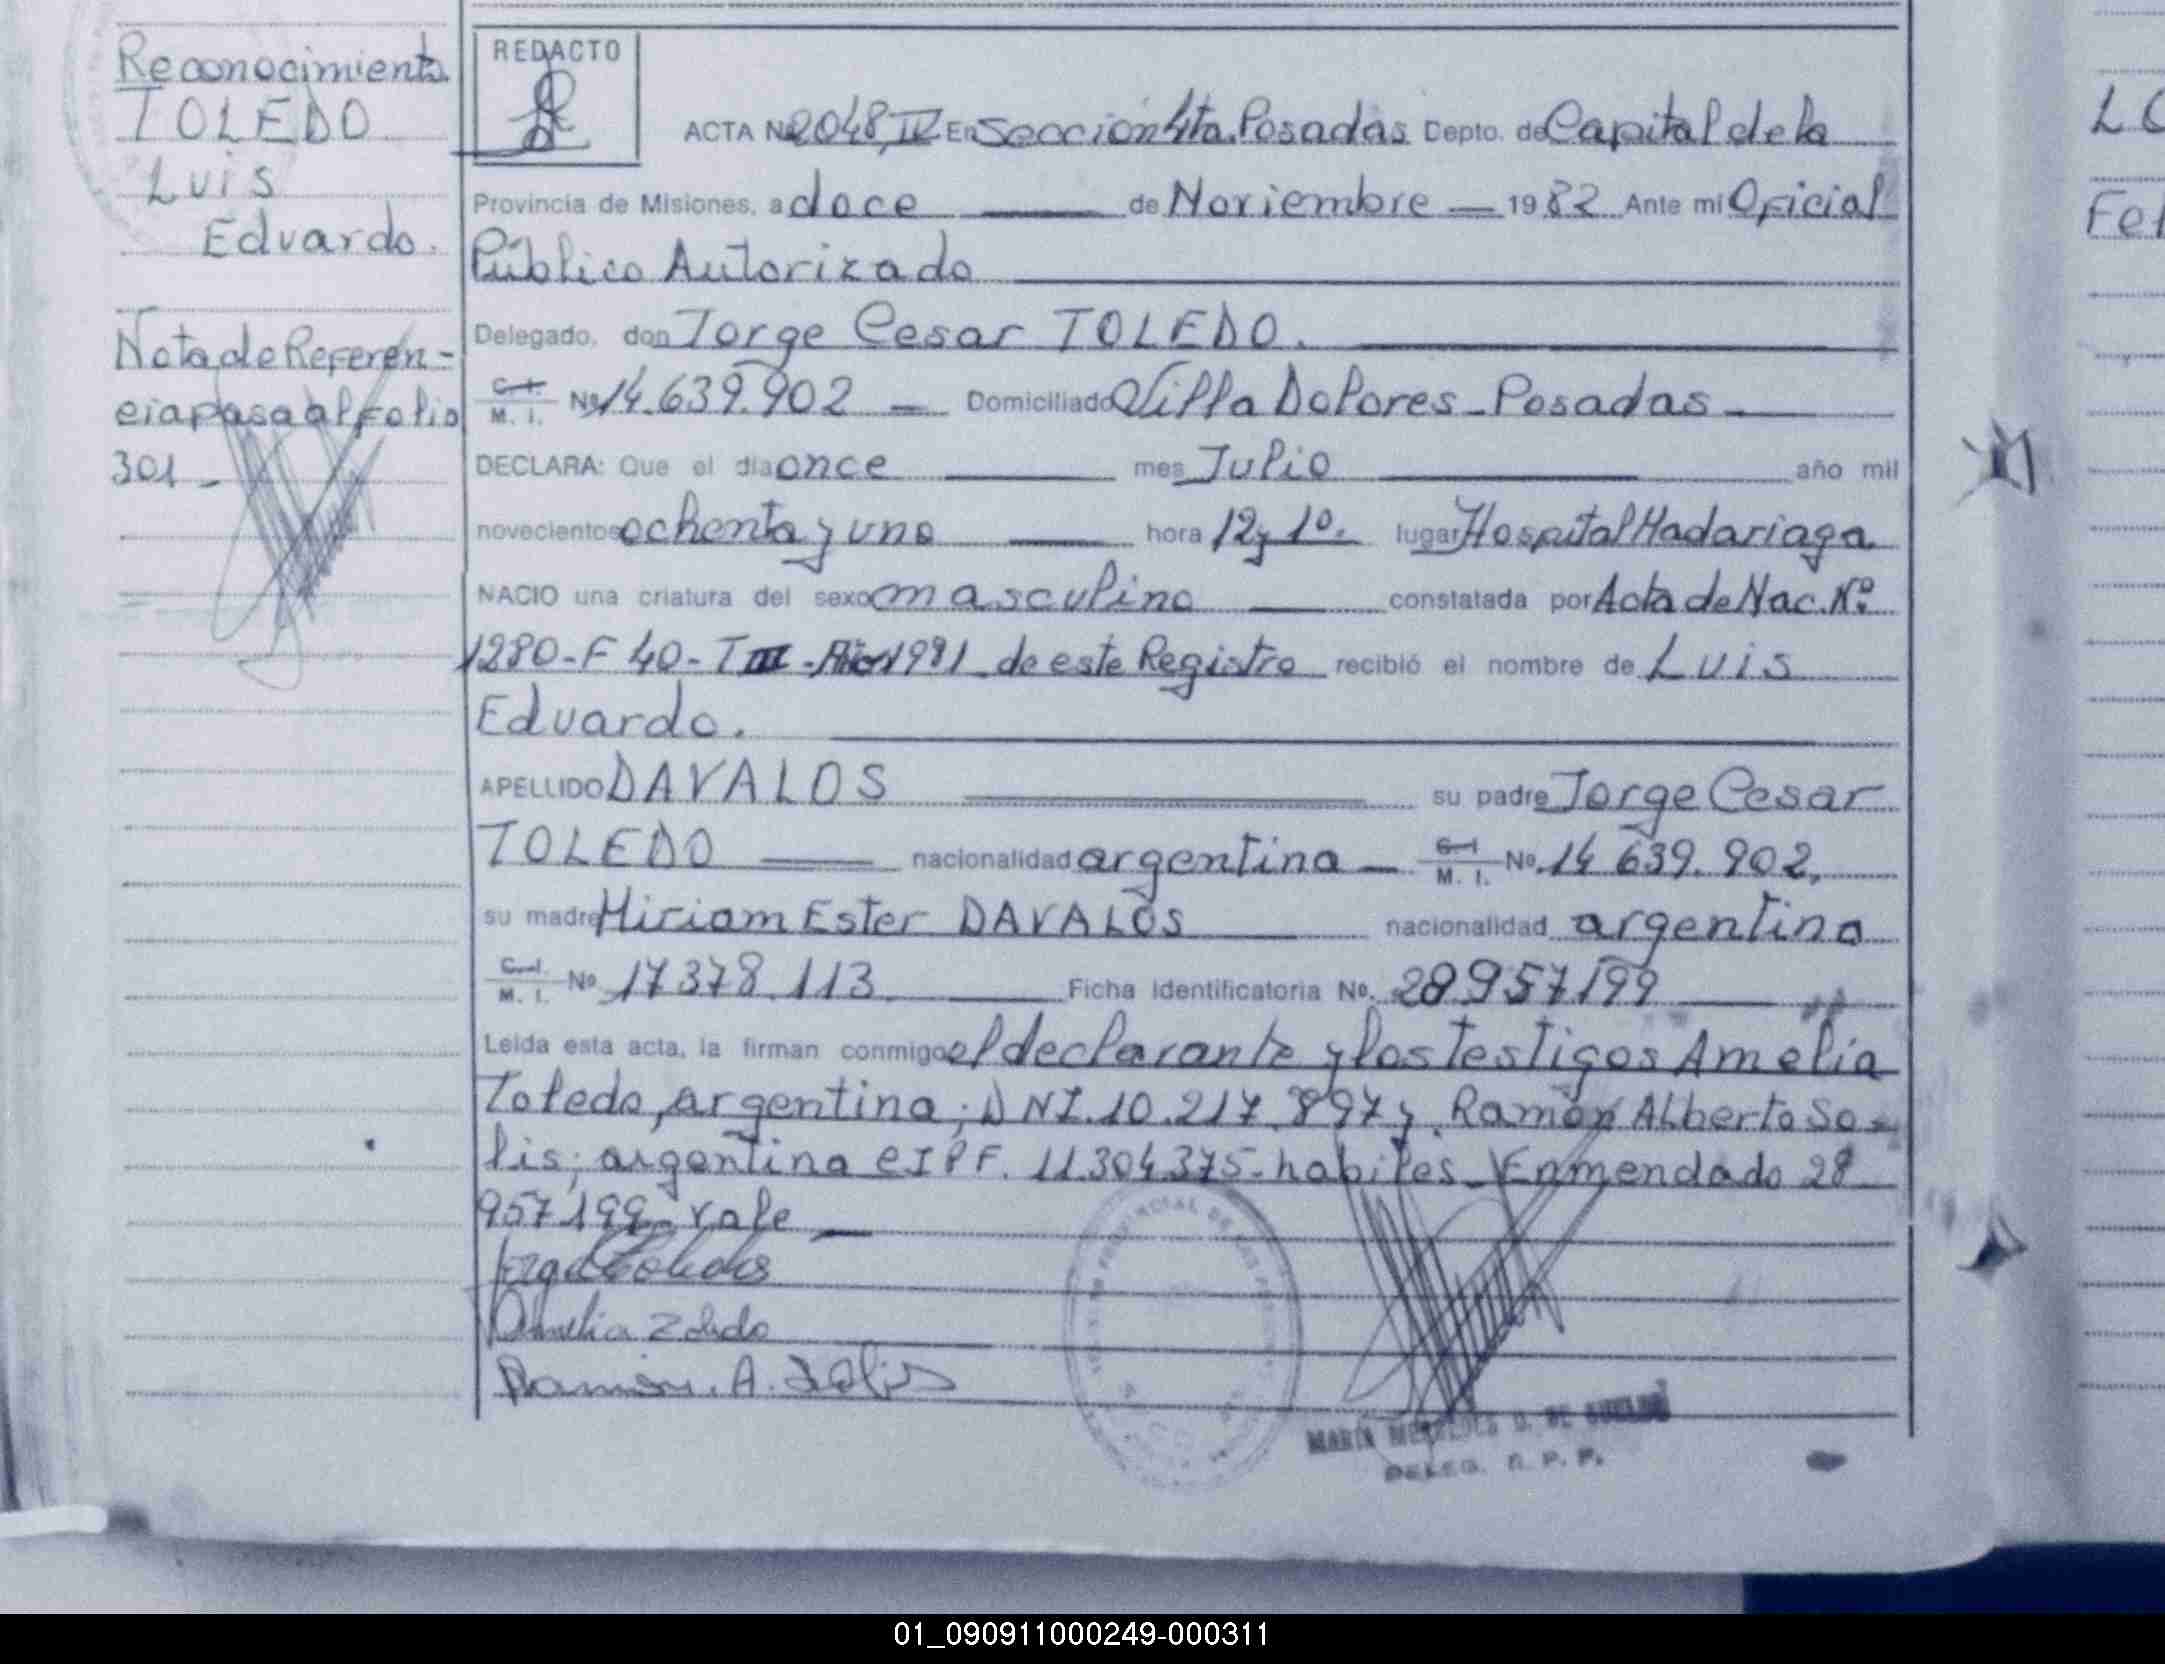 Reconocimiento
TOLEDO
Luis
Eduardo.
Nota de Referen-
cia pasa al folio
301-
REDACTO
ACTA Nº 2048, IV En Sección 4ta. Posadas Depto. de Capital de la
Provincia de Misiones, a doce de Noviembre 1982 Ante mi Oficial
Público Autorizado
Delegado, don Jorge Cesar TOLEDO.
C. I. M. I. Nº 14.639.902 Domiciliado Villa Dolores - Posadas
DECLARA: Que el día once mes Julio año mil
novecientos ochenta y uno hora 12 y 10. lugar Hospital Madariaga
NACIO una criatura del sexo masculino constatada por Acta de Nac. Nº
1280 - F 40 - T III - Año 1981 de este Registro recibió el nombre de Luis
Eduardo.
APELLIDO DAVALOS su padre Jorge Cesar
TOLEDO nacionalidad argentina C. I. M. I. Nº 14 639. 902,
su madre Miriam Ester DAVALOS nacionalidad argentina
C. I. M. I. Nº 17378.113. Ficha Identificatoria Nº 28957199
Leída esta acta, la firman conmigo el declarante y los testigos Amelia
Toledo, argentina; DNI. 10.217.897 y Ramón Alberto So-
lis; argentina CIPF. 11304375- habiles - Enmendado 28
957199 - vale
Amelia Toledo
Ramón. A. Solis
MARIA D. DE
DELEG. R. P. P.
LO
Fel
01_090911000249-000311